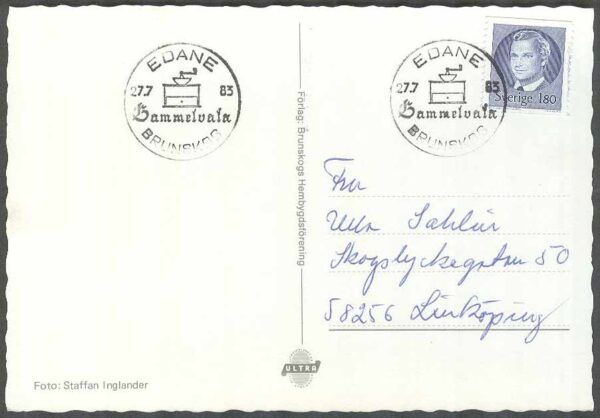 EDANE
27.7 83
Gammelvala
BRUNSKOG
EDANE
27.7 83
Gammelvala
BRUNSKOG
Sverige 180
Förlag: Brunskogs Hembygdsförening
Fru
Ulla Sahlür
Skogslyckegatan 50
58256 Linköping
ULTRA
Foto: Staffan Inglander